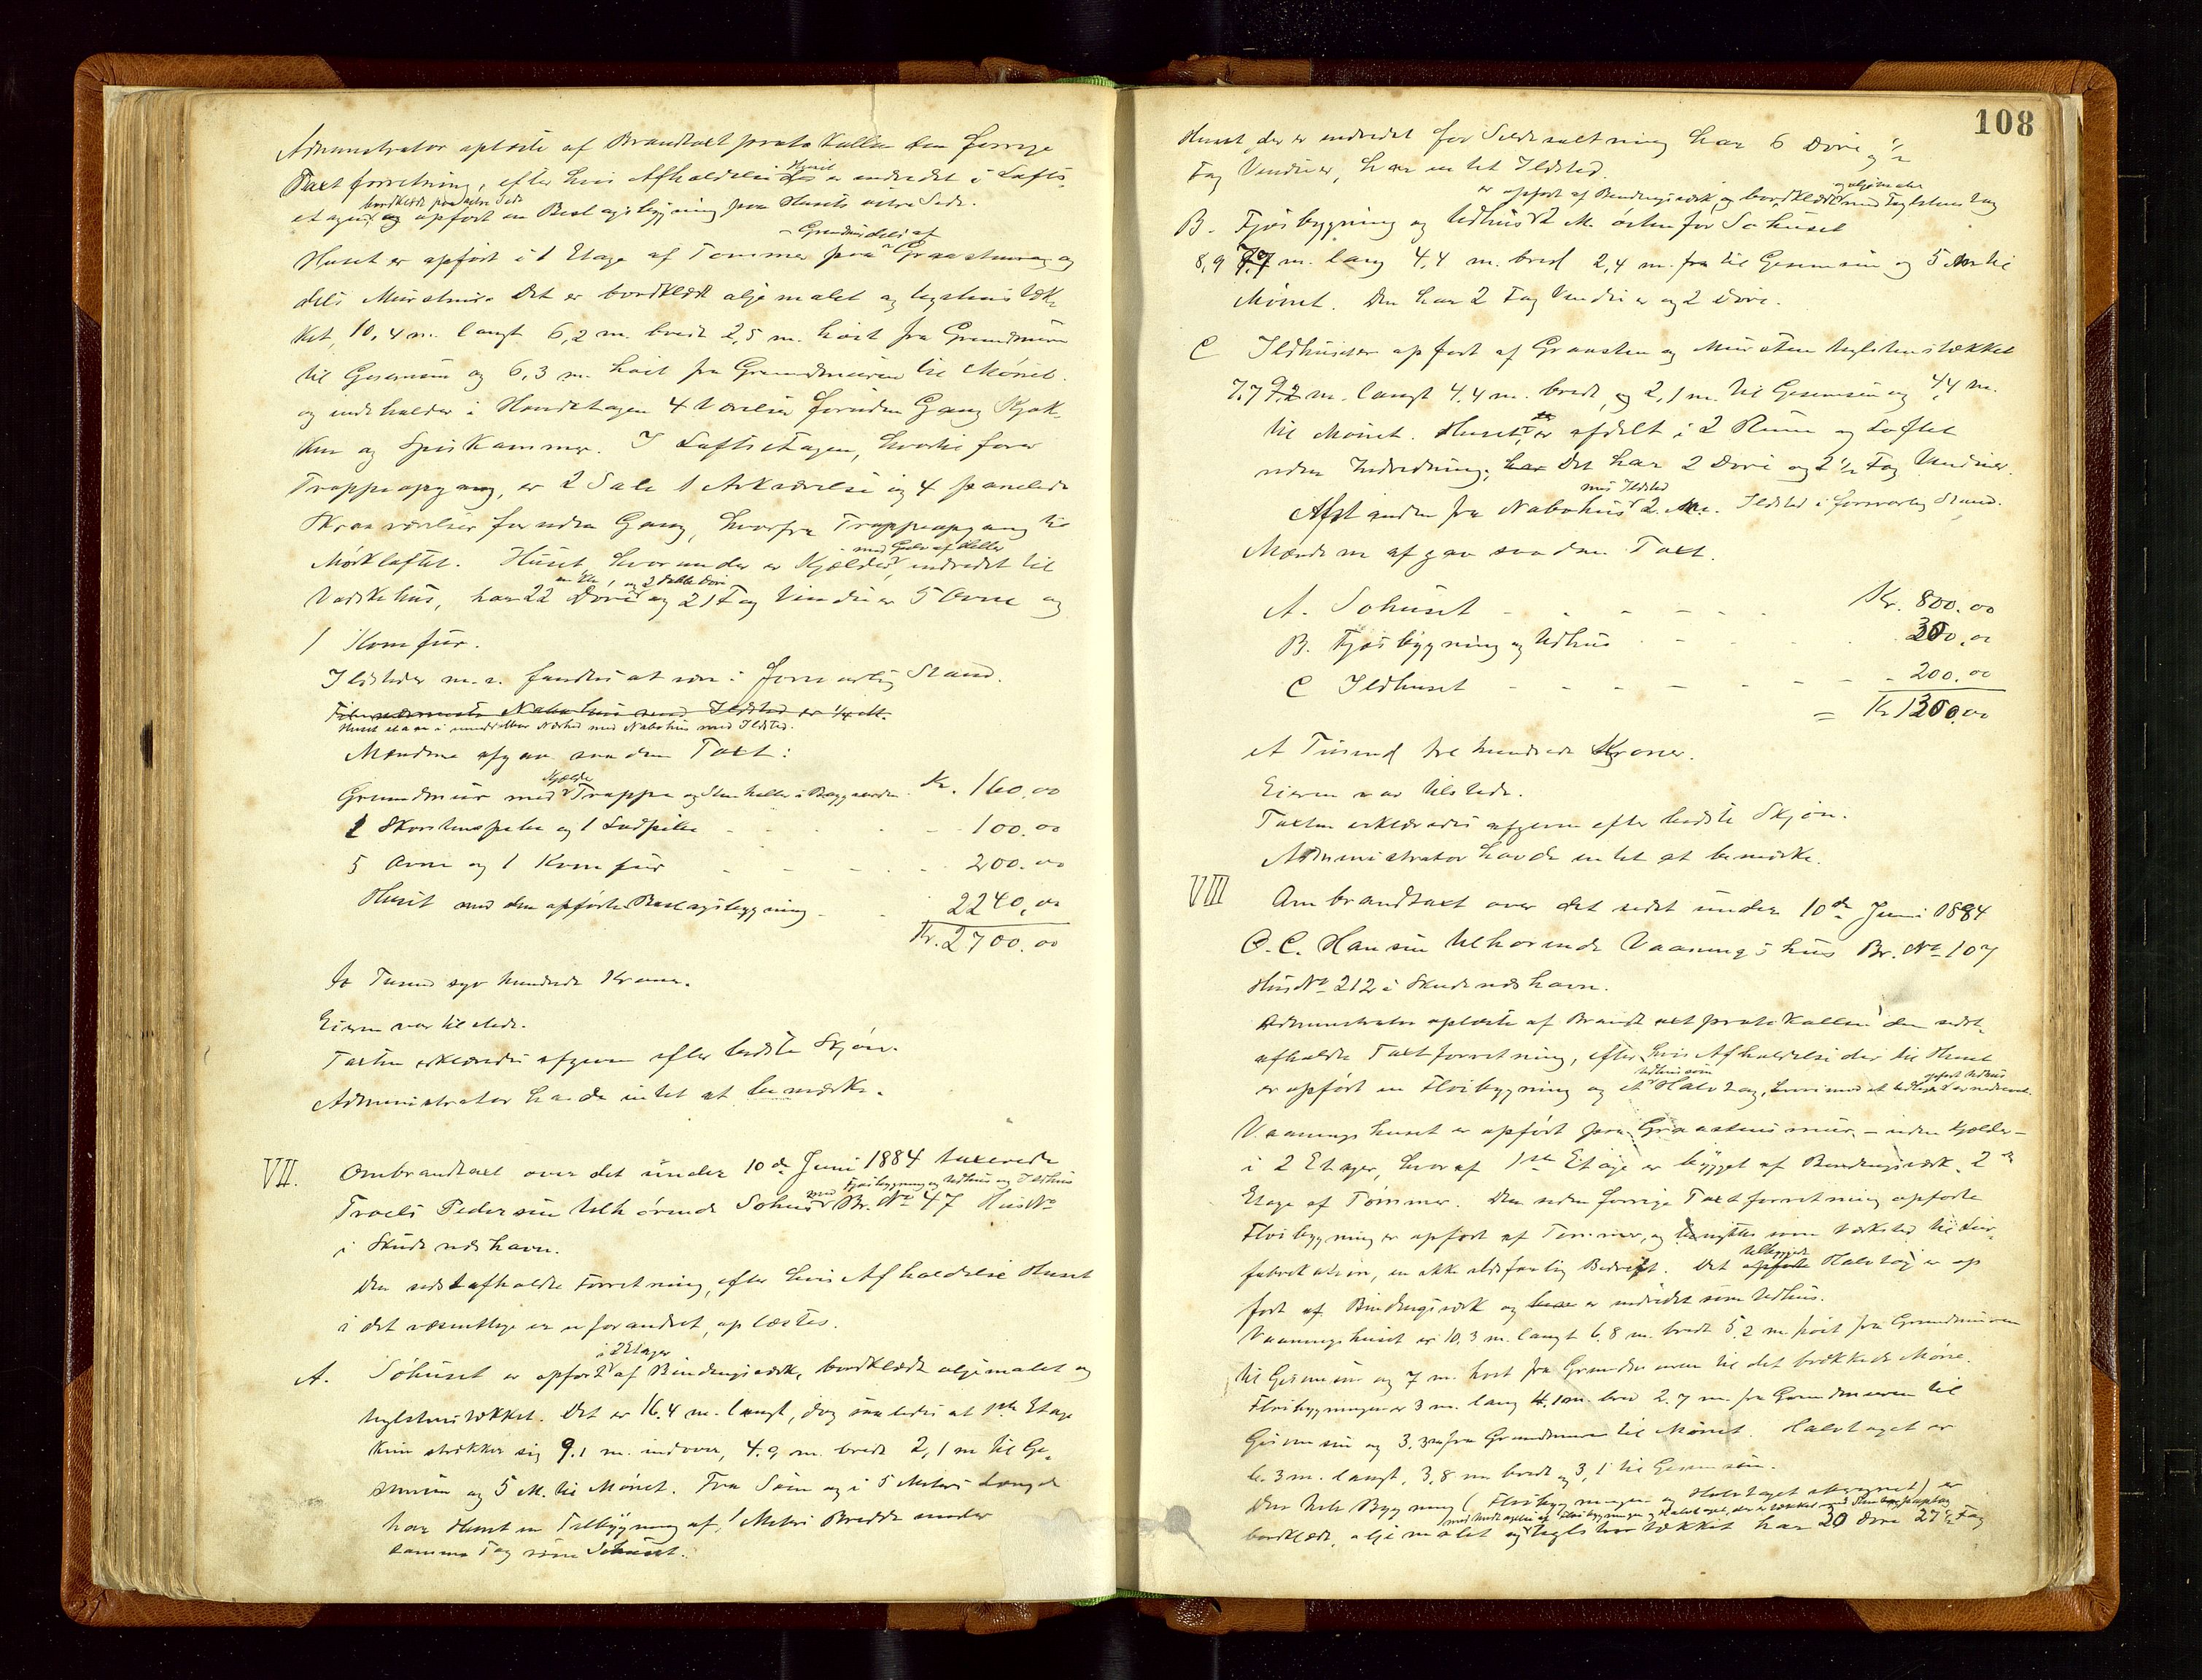 Administrator oplæste af Brandtaxtprotokollen den forrige
Taxtforretning, efter hvis Afholdelse Huset er indredet i Lofts-
etagen bordklædt paa indre Side og opført en Beslagsbygning paa Husets Side.
Huset er opført i 1 Etage af Tømmer paa Grundmur dels af Graastensmur og
dels Murstene. Det er bordklædt oljemalet og teglstenstæk-
ket, 10,4 m. langt 6,2 m. bredt 2,5 m. høit fra Grundmuren
til Gesemsen og 6,3 m. høit fra Grundmuren til Mønet.
og indeholder i Hovedetagen 4 Værelser foruden Gang Kjøk-
ken og Spiskammer. I Loftsetagen, hvortil fører
Trappeopgang, er 2 Sale 1 Arkværelse og 4 panelede
Skraaværelser foruden Gang, hvorfra Trappeopgang til
Mørkloftet. Huset, hvorunder er Kjælder med Gulv af Heller, indredet til
Vaskehus, har 22 Døre og 2 doble Døre og 21 Fag Vinduer 5 Ovne og
1 Komfur.
Ildsteder m. v. fandtes at være i forsvarlig Stand.
Til nærmeste Nabohus med Ildsted er
Huset staar i umiddelbar Nærhed med Nabohus med Ildsted.
Mændene afgav saadan Taxt:
Grundmur med Kjælder Trappe og Stenheller i Baggaarden Kr. 160.00
2 Skorstenspiber og 1 Ludpibe - - - 100.00
5 Ovne og 1 Komfur - - - 200.00
Huset med den opførte Beslagsbygning - - 2240.00
Kr. 2700.00
to Tusind syv hundrede Kroner.
Eieren var tilstede.
Taxten erklæredes afgiven efter bedste Skjøn.
Administrator havde intet at bemærke.
VII. Ombrandtaxt over det under 10de Juni 1884 taxerede
Troels Pedersen tilhørende Søhus med Fjøsbygning og Udhus og Ildhus Br. No 47 Hus No
i Skudesneshavn.
Den sidst afholdte Forretning, efter hvis Afholdelse Huset
i det væsentlige er uforandret, oplæstes.
A. Søhuset er opført i 2 Etager af Bindingsværk, bordklædt oljemalet og
teglstenstækket. Det er 16.4 m. langt, dog saaledes at 1ste Etage
kun strækker sig 9.1 m. indover, 4.9 m. bredt 2,1 m til Ge-
semsen og 5 M. til Mønet. Fra Søen og i 5 Meters Længde
har Huset en Tilbygning af 1 Meters Bredde under
samme Tag som Søhuset.
108
Huset, der er indredet for Sildesaltning har 6 Døre og 1/2
Fag Vinduer, har intet Ildsted.
B. Fjøsbygning og Udhus er opført af Bindingsværk og bordklædt og oljemalet med Teglstenstag 2 M. østenfor Søhuset
8,9 m. lang 4,4 m. bred 2,4 m. til Gesemsen og 5 M til
Mønet. Den har 2 Fag Vinduer og 2 Døre.
C Ildhuset er opført af Graasten og Mursten teglstenstækket
7,7 m. langt 4.4 m. bredt, og 2,1 m. til Gesemsen og 4,4 m.
til Mønet. Huset er afdelt i 2 Rum og Loftet
uden Indredning; har Det har 2 Døre og 2 1/2 Fag Vinduer.
Afstanden fra Nabohus med Ildsted 2 M. Ildsted i forsvarlig Stand.
Mændene afgav saadan Taxt.
A. Søhuset - - - - - Kr. 800.00
B. Fjøsbygning og Udhus - - - 300.00
C Ildhuset - - - - - 200.00
= Kr 1300.00
et Tusind tre hundrede Kroner.
Eieren var tilstede.
Taxten erklæredes afgiven efter bedste Skjøn.
Administrator havde intet at bemærke.
VIII Ombrandtaxt over det sidst under 10de Juni 1884
O. C. Hansen tilhørende Vaaningshus Br. No 107
Hus No 212 i Skudesneshavn.
Administrator oplæste af Brandtaxtprotokollen den sidst
afholdte Taxtforretning, efter hvis Afholdelse der til Huset
er opført en Fløibygning og et Udhus som Halvtag, hvorimod et opført Udhus er nedrevet.
Vaaningshuset er opført paa Graastensmur, - uden Kjelder -
i 2 Etager, hvoraf 1ste Etage er bygget af Bindingsværk, 2de
Etage af Tømmer. Den siden forrige Taxtforretning opførte
Fløibygning er opført af Tømmer, og benyttes som Værksted til
fabrikation, en ikke ildsfarlig Bedrift. Det tilbyggede Halvtag er op
ført af Bindingsværk og er indredet som Udhus.
Vaaningshuset er 10,3 m. langt 6,8 m. bredt 5,2 m høit fra Grundmuren
til Gesemsen og 7 m. høit fra Grundmuren til det brækkede Møne.
Fløibygningen er 3 m. lang 4,1 m. bred 2.7 m. fra Grundmuren til
Gesemsen og 3.3 m fra Grundmuren til Mønet. Halvtaget er
3 m. langt, 3,8 m. bredt og 3,1 til Gesemsen.
Den hele Bygning (Fløibygningen og Halvtaget iberegnet) er
bordklædt, oljemalet og teglstenstækket har 20 Døre 27 1/2 Fag